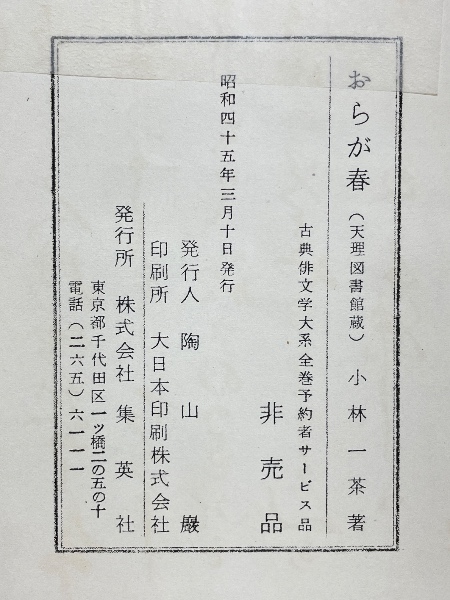 おらが春（天理図書館蔵）小林一茶著
古典俳文学大系全巻予約者サービス品
非売品
昭和四十五年三月十日発行
発行人 陶山巌
印刷所 大日本印刷株式会社
発行所 株式会社 集英社
東京都千代田区一ツ橋二の五の十
電話（二六五）六一一一